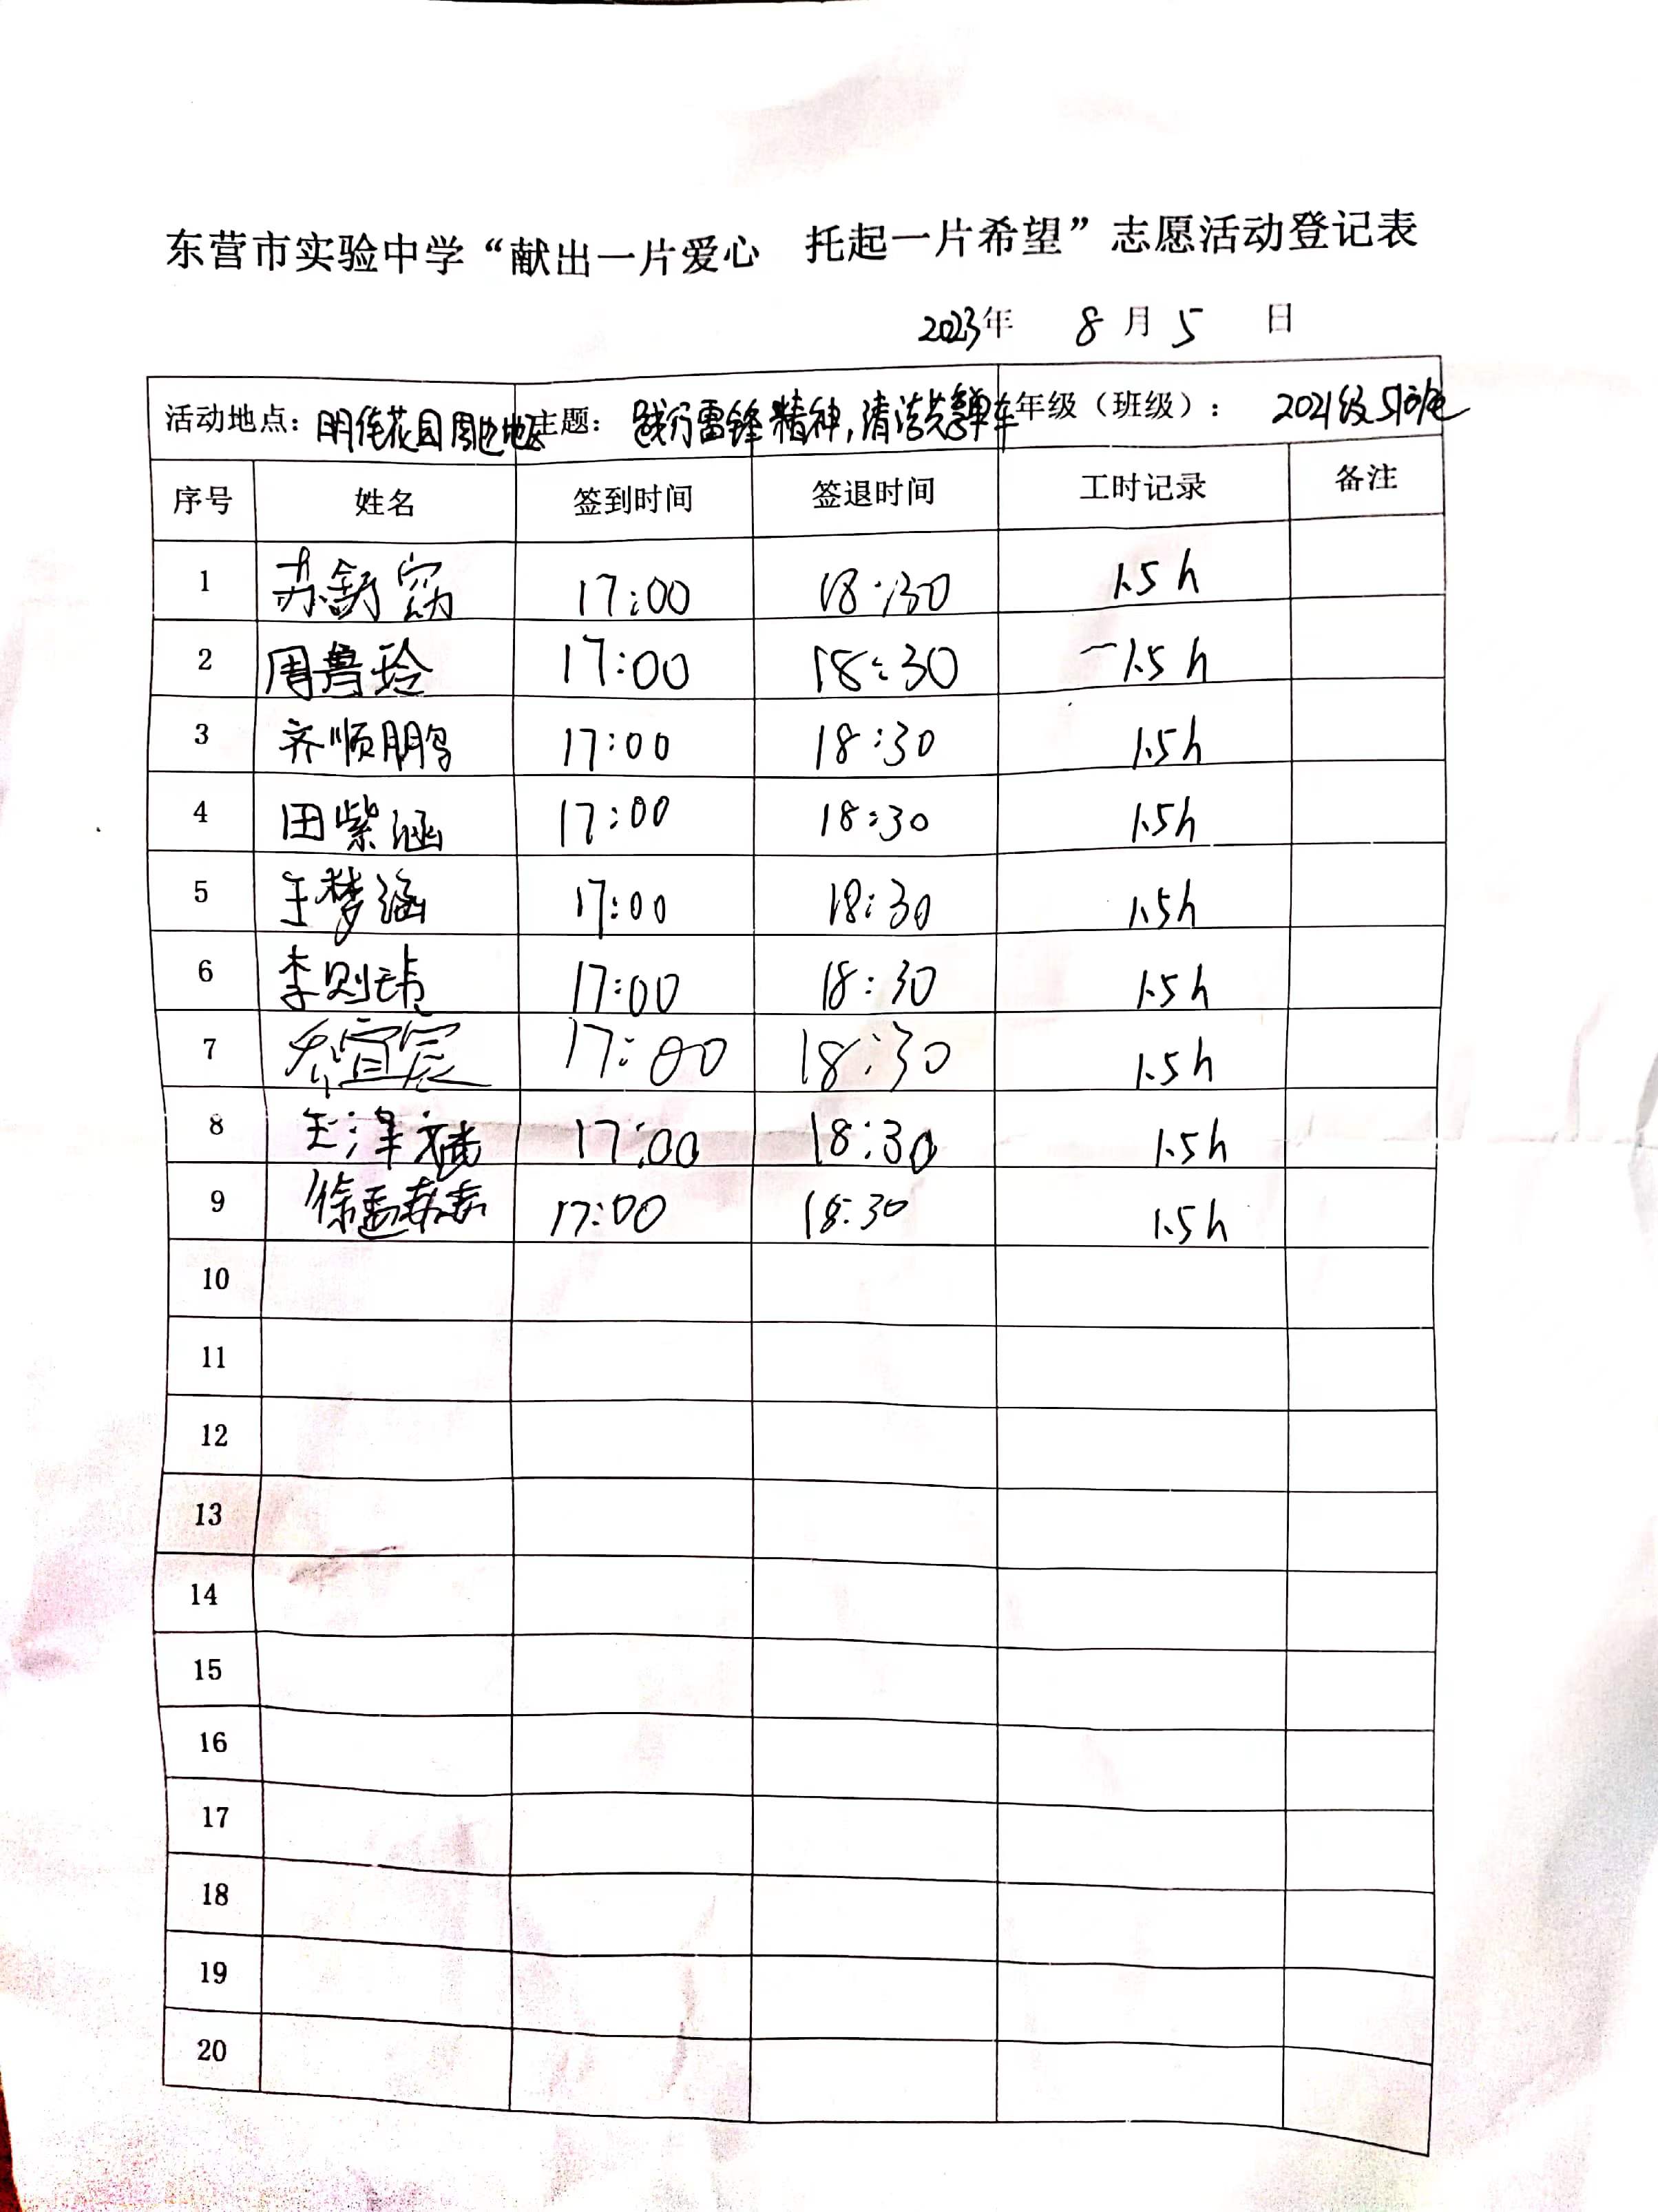 东营市实验中学“献出一片爱心 托起一片希望”志愿活动登记表
2023年 8月5 日
活动地点: 花园周边地区 主题: 践行雷锋精神,清洁共享单车 年级(班级): 2021级
序号 姓名 签到时间 签退时间 工时记录 备注
1 苏舒窈 17:00 18:30 1.5h
2 周鲁玲 17:00 18:30 1.5h
3 齐顺鹏 17:00 18:30 1.5h
4 田紫涵 17:00 18:30 1.5h
5 王梦涵 17:00 18:30 1.5h
6 李则玮 17:00 18:30 1.5h
7 宜宸 17:00 18:30 1.5h
8 王泽斌 17:00 18:30 1.5h
9 徐孟 17:00 18:30 1.5h
10
11
12
13
14
15
16
17
18
19
20